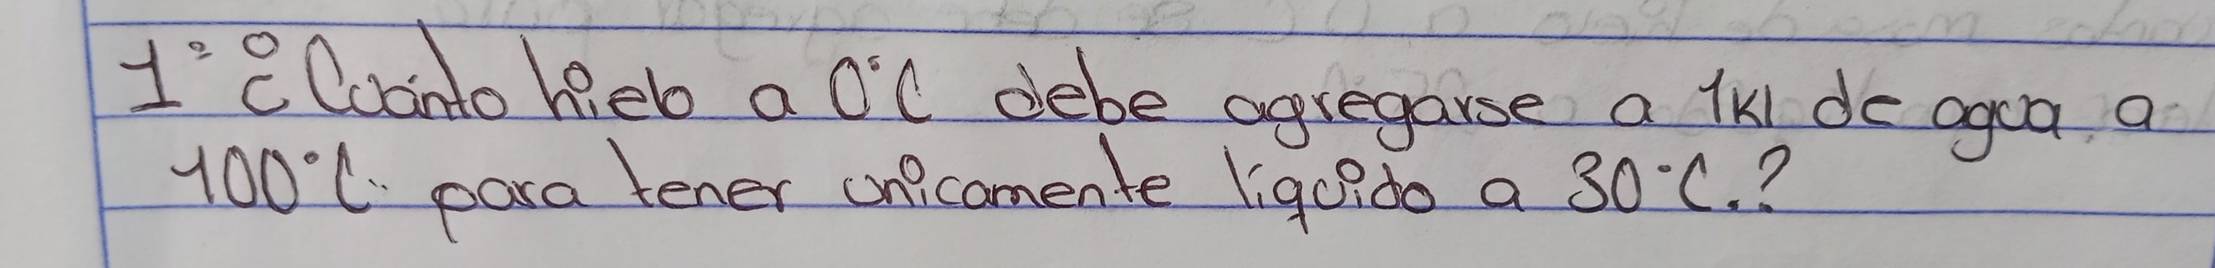 1° ¿Cuánto hielo a 0°C debe agregarse a 1kl de agua a
100°C. para tener unicamente liquido a 30°C.?